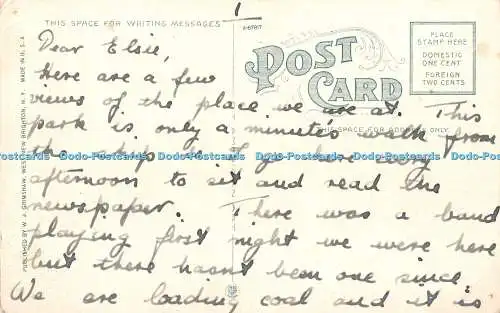 THIS SPACE FOR WRITING MESSAGES
1
A-67917
POST CARD
PLACE
STAMP HERE
DOMESTIC
ONE CENT
FOREIGN
TWO CENTS
THIS SPACE FOR ADDRESS ONLY
PUBLISHED BY W. J. GRIMSHAW, WEST NEW BRIGHTON, N. Y. MADE IN U. S. A
Dear Elsie,
Here are a few
views of the place we are at. This
park is only a minute's walk from
the ship so I go here every
afternoon to sit and read the
newspaper. There was a band
playing first night we were here
but there hasn't been one since.
We are loading coal and it is
Postcards Dodo-Postcards Dodo-Postcards Dodo-Postcards Dodo-Postcards Dodo-Postcards